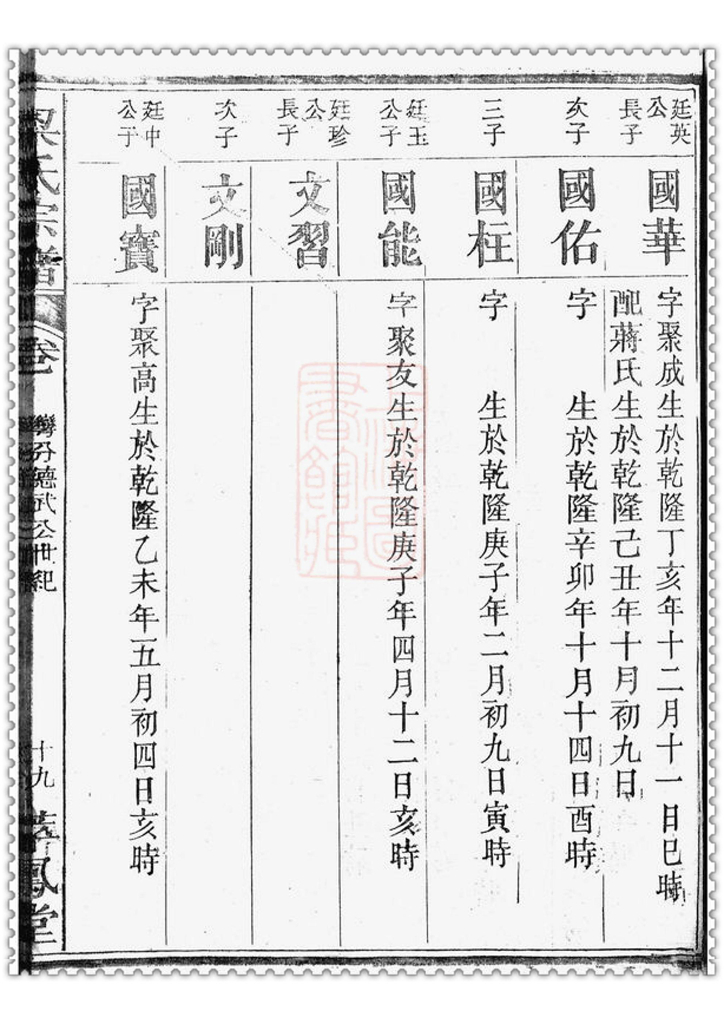 廷英
公
長子
國華
字聚成生於乾隆丁亥年十二月十一日巳時
配蔣氏生於乾隆己丑年十月初九日
次子
國佑
字 生於乾隆辛卯年十月十四日酉時
三子
國柱
字 生於乾隆庚子年二月初九日寅時
廷玉
公子
國能
字聚友生於乾隆庚子年四月十二日亥時
廷珍
公
長子
文習
次子
文剛
廷中
公子
國寳
字聚高生於乾隆乙未年五月初四日亥時
氏宗譜
卷
德武公世紀
十九
鳳堂